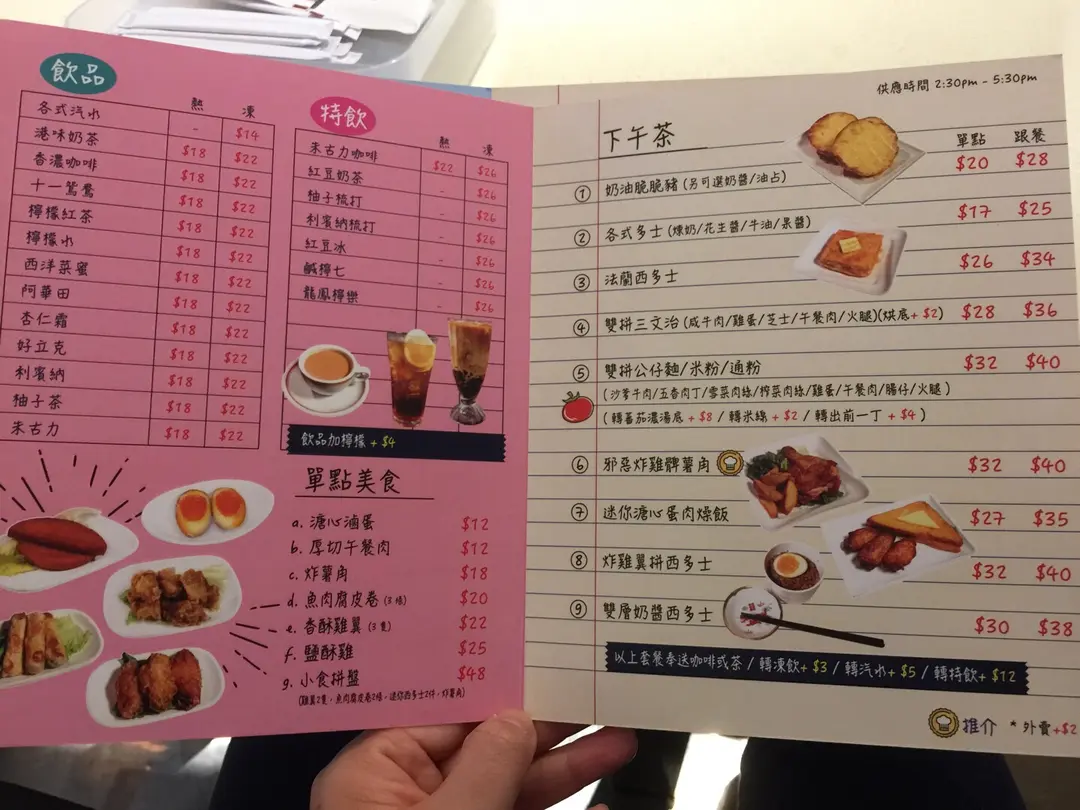 飲品
熱 凍
各式汽水 - $14
港味奶茶 $18 $22
香濃咖啡 $18 $22
十一鴛鴦 $18 $22
檸檬紅茶 $18 $22
檸檬水 $18 $22
西洋菜蜜 $18 $22
阿華田 $18 $22
杏仁霜 $18 $22
好立克 $18 $22
利賓納 $18 $22
柚子茶 $18 $22
朱古力 $18 $22
特飲
熱 凍
朱古力咖啡 $22 $26
紅豆奶茶 - $26
柚子梳打 - $26
利賓納梳打 - $26
紅豆冰 - $26
鹹檸七 - $26
龍鳳檸樂 - $26
飲品加檸檬 + $4
單點美食
a. 溏心滷蛋 $12
b. 厚切午餐肉 $12
c. 炸薯角 $18
d. 魚肉腐皮卷 (3條) $20
e. 香酥雞翼 (3隻) $22
f. 鹽酥雞 $25
g. 小食拼盤 $48
(雞翼2隻，魚肉腐皮卷2條，迷你西多士2件，炸薯角)
供應時間 2:30pm - 5:30pm
下午茶
單點 跟餐
① 奶油脆脆豬 (另可選奶醬/油占) $20 $28
② 各式多士 (煉奶/花生醬/牛油/果醬) $17 $25
③ 法蘭西多士 $26 $34
④ 雙拼三文治 (咸牛肉/雞蛋/芝士/午餐肉/火腿)(烘底+ $2) $28 $36
⑤ 雙拼公仔麵/米粉/通粉 $32 $40
(沙爹牛肉/五香肉丁/雪菜肉絲/榨菜肉絲/雞蛋/午餐肉/腸仔/火腿)
(轉蕃茄濃湯底 + $8 / 轉米線 + $2 / 轉出前一丁 + $4 )
⑥ 邪惡炸雞髀薯角 $32 $40
⑦ 迷你溏心蛋肉燥飯 $27 $35
⑧ 炸雞翼拼西多士 $32 $40
⑨ 雙層奶醬西多士 $30 $38
以上套餐奉送咖啡或茶 / 轉凍飲+ $3 / 轉汽水+ $5 / 轉特飲+ $12
推介 * 外賣+$2